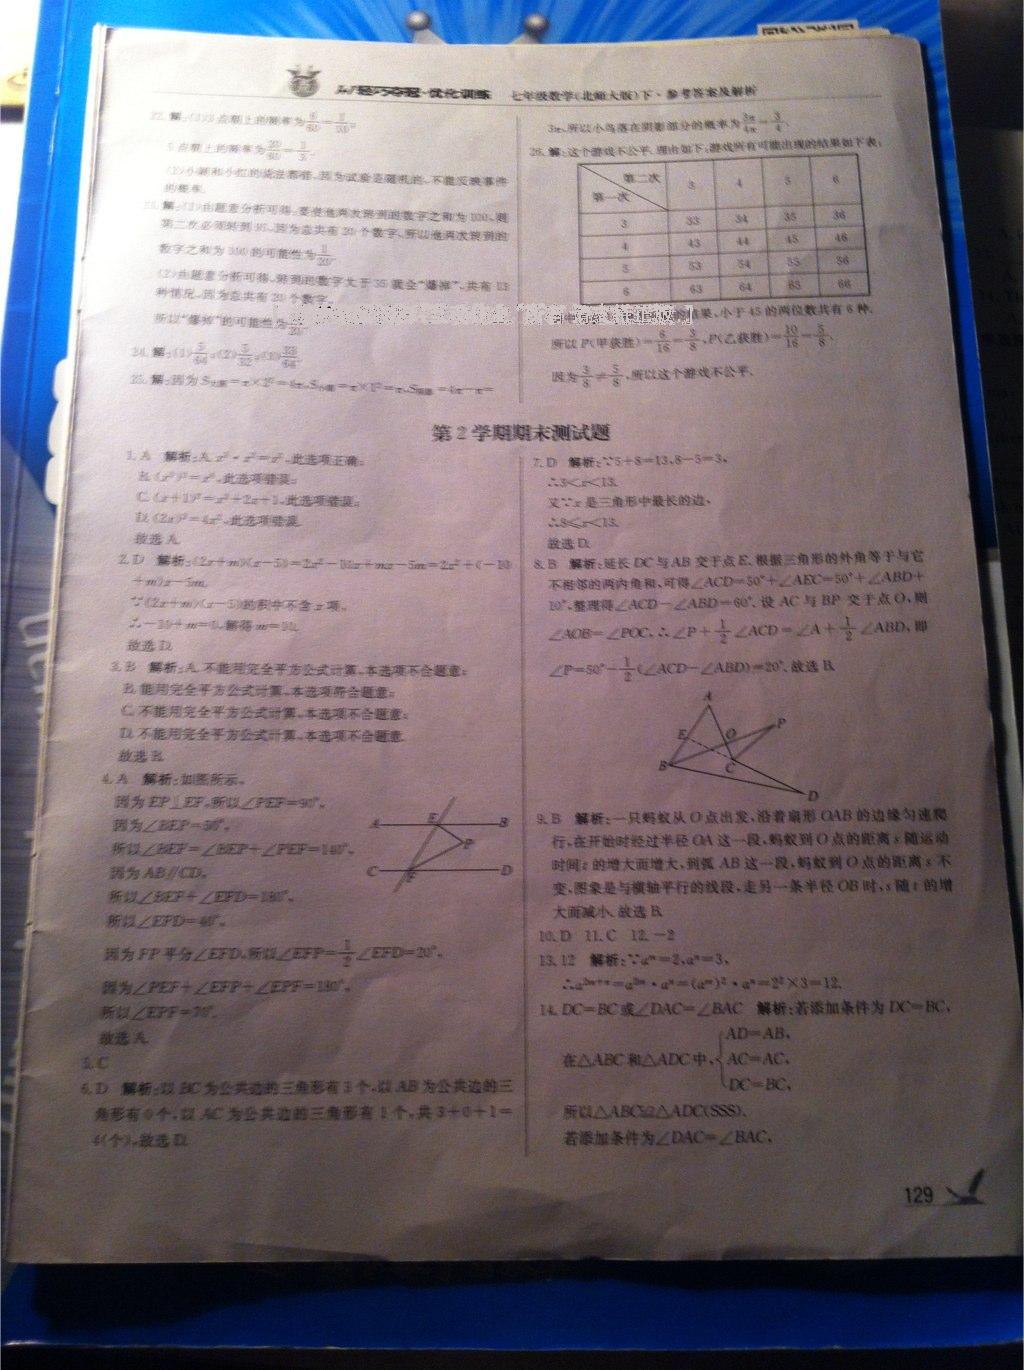 1+1轻巧夺冠·优化训练 七年级数学(北师大版)下·参考答案及解析
5点朝上的频率为20/60=1/3.
(2)小颖和小红的说法都错,因为试验是随机的,不能反映事件
的概率.
23.解:(1)由题意分析可得,要使他两次转到的数字之和为100,则
第二次必须转到95,因为总共有20个数字,所以他两次转到的
数字之和为100的可能性为1/20.
(2)由题意分析可得,转到的数字大于35就会“爆掉”,共有13
种情况,因为总共有20个数字,
所以“爆掉”的可能性为
24.解:(1)5/64;(2)5/32;(3)
25.解:因为
3π,所以小鸟落在阴影部分的概率为3π/4π=3/4.
26.解:这个游戏不公平.理由如下:游戏所有可能出现的结果如下表:
第二次 3 4 5 6
第一次
3 33 34 35 36
4 43 44 45 46
5 53 54 55 56
6 63 64 65 66
结果,小于45的两位数共有6种.
所以P(甲获胜)=6/16=3/8,P(乙获胜)=10/16=5/8.
因为3/8≠5/8,所以这个游戏不公平.
第2学期期末测试题
1.A 解析:A.此选项正确;
B.此选项错误;
C.(x+1)²=x²+2x+1,此选项错误;
D.(2x)²=4x²,此选项错误.
故选A.
2.D 解析:(2x+m)(x-5)=2x²-10x+mx-5m=2x²+(-10
+m)x-5m.
∵(2x+m)(x-5)的积中不含x项,
∴-10+m=0,解得m=10.
故选D.
3.B 解析:A.不能用完全平方公式计算,本选项不合题意;
B.能用完全平方公式计算,本选项符合题意;
C.不能用完全平方公式计算,本选项不合题意;
D.不能用完全平方公式计算,本选项不合题意.
故选B.
4.A 解析:如图所示,
因为EP⊥EF,所以∠PEF=90°,
因为∠BEP=50°,
所以∠BEF=∠BEP+∠PEF=140°,
因为AB∥CD,
所以∠BEF+∠EFD=180°,
所以∠EFD=40°,
因为FP平分∠EFD,所以∠EFP=1/2∠EFD=20°,
因为∠PEF+∠EFP+∠EPF=180°,
所以∠EPF=70°.
故选A.
A E B
P
C F D
5.C
6.D 解析:以BC为公共边的三角形有3个,以AB为公共边的三
角形有0个,以AC为公共边的三角形有1个,共3+0+1=
4(个),故选D.
7.D 解析:∵5+8=13,8-5=3,
∴3<x<13.
又∵x是三角形中最长的边,
∴8≤x<13.
故选D.
8.B 解析:延长DC与AB交于点E.根据三角形的外角等于与它
不相邻的两内角和,可得∠ACD=50°+∠AEC=50°+∠ABD+
10°,整理得∠ACD-∠ABD=60°.设AC与BP交于点O,则
∠AOB=∠POC,∴∠P+1/2∠ACD=∠A+1/2∠ABD,即
∠P=50°-1/2(∠ACD-∠ABD)=20°.故选B.
A
E O P
B C
D
9.B 解析:一只蚂蚁从O点出发,沿着扇形OAB的边缘匀速爬
行,在开始时经过半径OA这一段,蚂蚁到O点的距离s随运动
时间t的增大而增大,到弧AB这一段,蚂蚁到O点的距离s不
变,图象是与横轴平行的线段,走另一条半径OB时,s随t的增
大而减小.故选B.
10.D 11.C 12.-2
13.12 解析:∵aᵐ=2,aⁿ=3,
∴a²ᵐ⁺ⁿ=a²ᵐ·aⁿ=(aᵐ)²·aⁿ=2²×3=12.
14.DC=BC或∠DAC=∠BAC 解析:若添加条件为DC=BC,
AD=AB,
在△ABC和△ADC中, AC=AC,
DC=BC,
所以△ABC≌△ADC(SSS).
若添加条件为∠DAC=∠BAC,
129